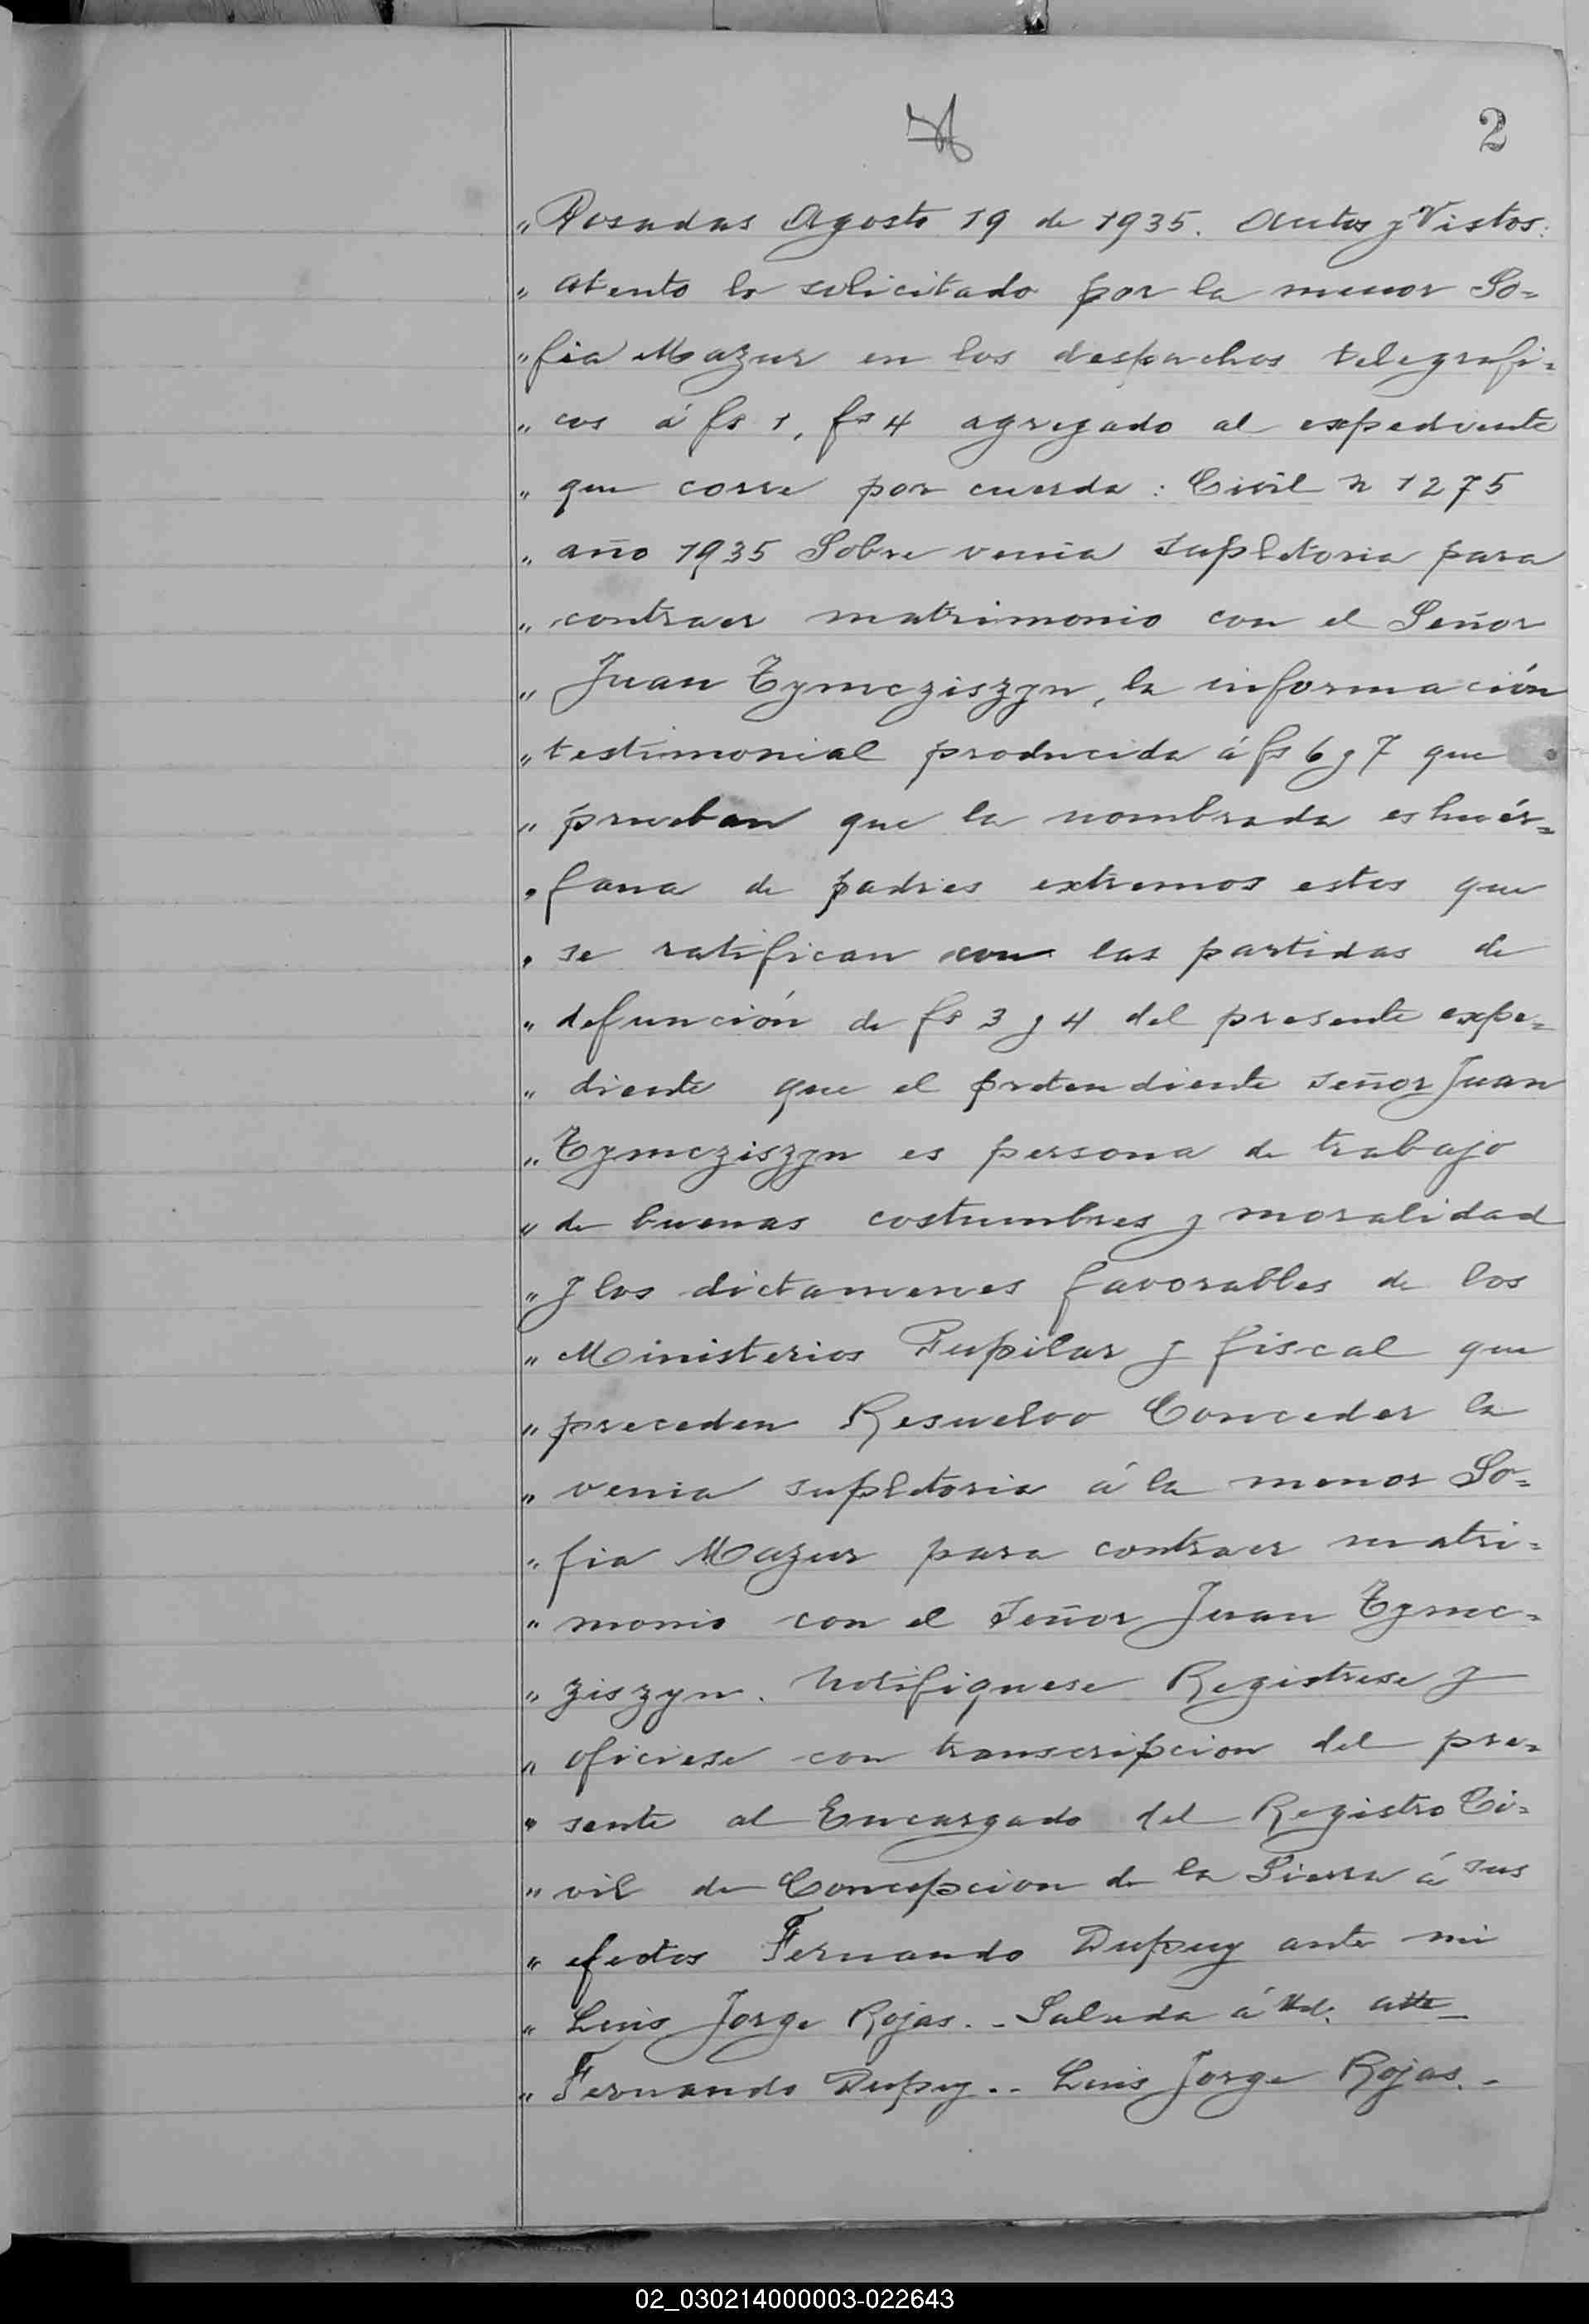 2
"Posadas Agosto 19 de 1935. Autos y Vistos:
" atento lo solicitado por la menor So=
"fia Mazur en los despachos telegrafi=
" cos á fs 1, fs 4 agregado al expediente
" que corre por cuerda: Civil n 1275
" año 1935 Sobre venia supletoria para
" contraer matrimonio con el Señor
" Juan Tymcziszyn, la información
"testimonial producida á fs 6 y 7 que
" prueban que la nombrada es huér=
"fana de padres extremos estos que
" se ratifican con las partidas de
" defunción de fs 3 y 4 del presente expe=
" diente que el pretendiente señor Juan
"Tymcziszyn es persona de trabajo
" de buenas costumbres y moralidad
" y los dictamenes favorables de los
" Ministerios Pupilar y fiscal que
" preceden Resuelvo Conceder la
" venia supletoria á la menor So=
" fia Mazur para contraer matri=
" monio con el señor Juan Tymc=
" ziszyn. Notifiquese Registrese y
" oficiese con transcripcion del pre=
" sente al Encargado del Registro Ci=
" vil de Concepcion de la Sierra á sus
" efectos Fernando Dupuy ante mi
" Luis Jorge Rojas.- Saluda á Ud. atte
" Fernando Dupuy.- Luis Jorge Rojas.-
02_030214000003-022643